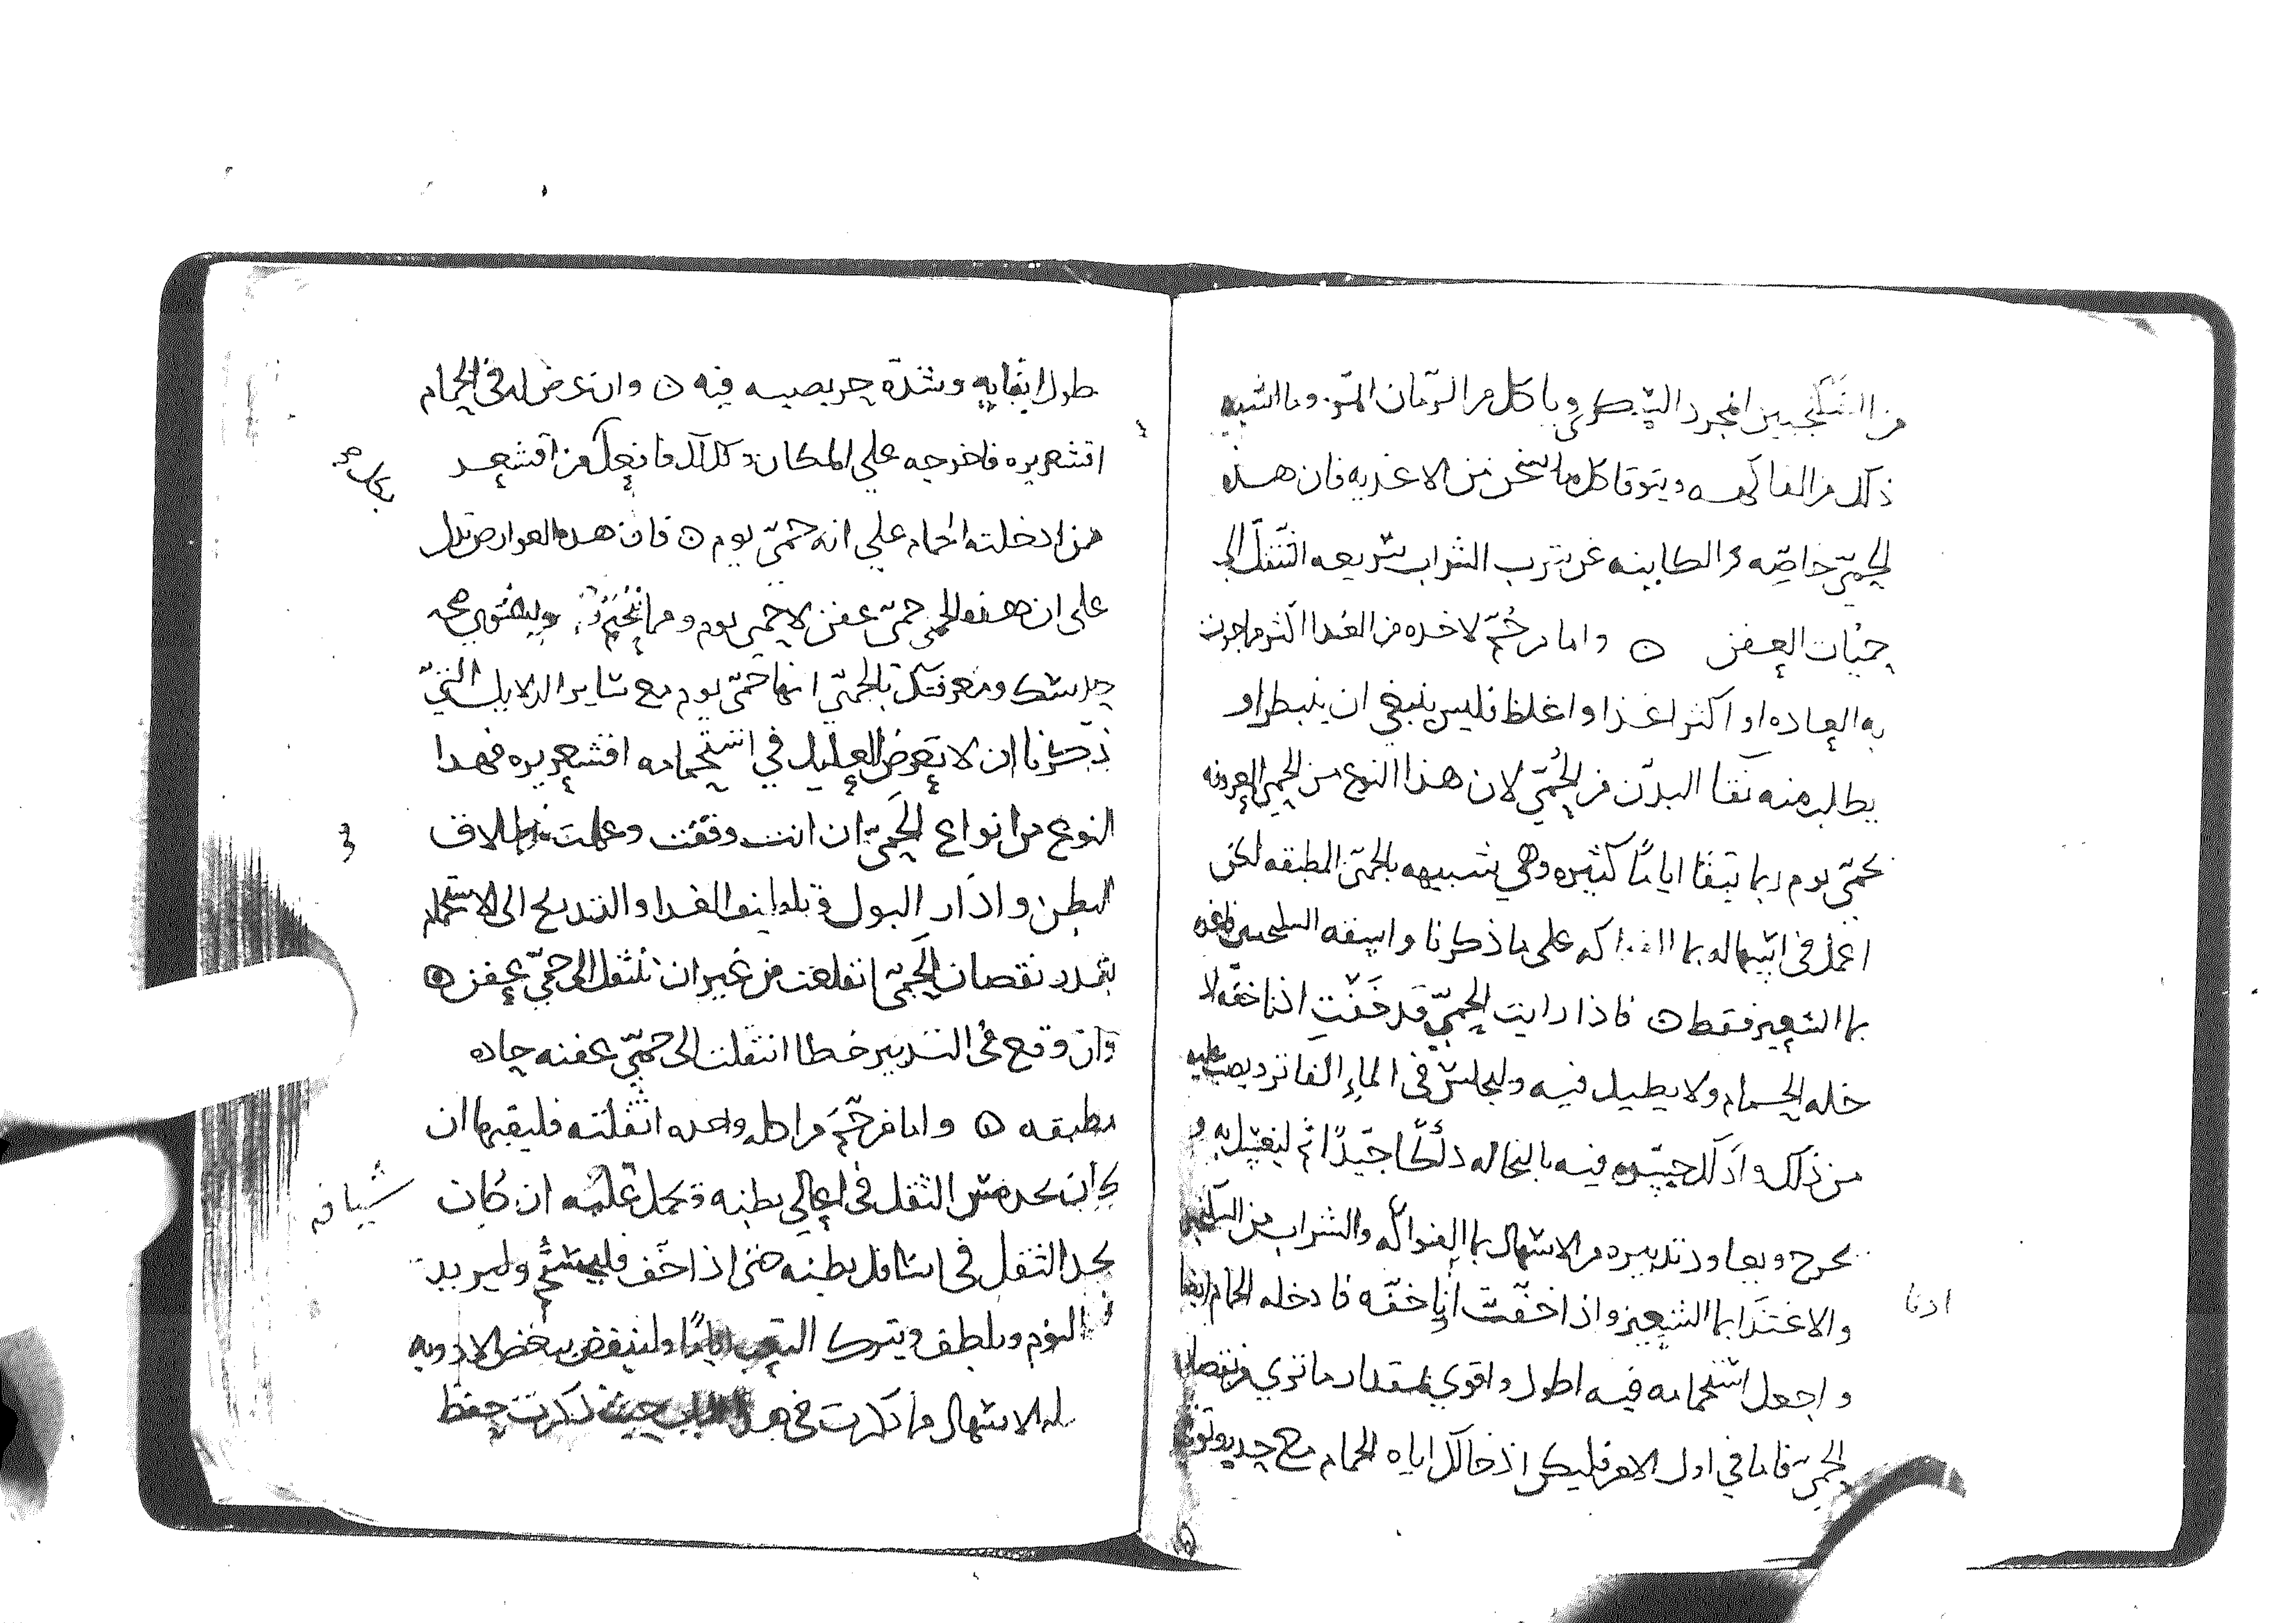 من السكنجبين المجرد السكري وياكل من الرمان المز وما اشبه
ذلك من الفاكهه ويتوقا كل ما يسخن من الاغذيه فان هذه
الحمى خاصه والكاينه عن شرب الشراب سريعه التنقل الى
حميات العفن ه واما من حم لاخذه من الغذا اكثر مما جرت
به العاده او اكثر اغذا واغلظ فليس ينبغي ان ينبطر او
يطلب منه نقا البدن من الحمى لان هذا النوع من الحمى المعروفه
بحمى يوم ربما تبقا اياما كثيره وهي شبيهه بالحمى المطبقه لكن
اعمل في اسهاله بما الفواكه على ما ذكرنا واسقه السكنجبين
بما الشعير فقط ه فاذا رايت الحمى قد خفت ادنا خفه فا
دخله الحمام ولا يطيل فيه وليجلس في الماء الفاتر ويصب عليه
من ذلك وادلك جسده فيه بالنخاله دلكا جيدا ثم ليغتسل به و
يخرج ويعاود تدبيره من الاسهال بما الفواكه والشراب من السكنجبين
والاغتذا بما الشعير واذا خفت ادنا خفه فادخله الحمام ايضا
ادنا
واجعل استحمامه فيه اطول واقوي بمقدار ما تري من نقصان
الحمى فاما في اول الامر فليكن اذخالك اياه الحمام مع حذر وتوقي
طول ابقايه وشدة حر يصيبه فيه ه وان عرض له في الحمام
اقشعريره فاخرجه علي المكان وكذلك فافعل بمن اقشعر
بكل من
ممن ادخلته الحمام علي انه حمى يوم ه فان هذه العوارض تدل
على ان هذه الحمى حمى عفن لا حمى يوم ومما
حدسك ومعرفتك بالحمى انها حمى يوم مع ساير الدلايل التي
ذكرنا ان لا تعرض للعليل في استحمامه اقشعريره فهذا
النوع من انواع الحمى ان انت وفقت وعملت في اطلاق
البطن وادرار البول وتلطيف الغذا والتدريج الى الاستحمام
بقدر نقصان الحمى انقلعت من غير ان تنتقل الى حمى عفن ه
وان وقع في التدبير خطا انتقلت الى حمى عفنه حاده
مطبقه ه واما من حم من اكله واحده اثقلته فليقيها ان
كان يجد مس الثقل في اعالي بطنه وتحمل عليه ان كان
شيافه
يجد الثقل في اسافل بطنه حتى اذا خف فليستحم وليريد
النوم ويلطف ويترك التعب اياما ولينفض ببعض الادويه
المسهله الاسهال مما ذكرت في هذا الباب حيث ذكرت حفظ